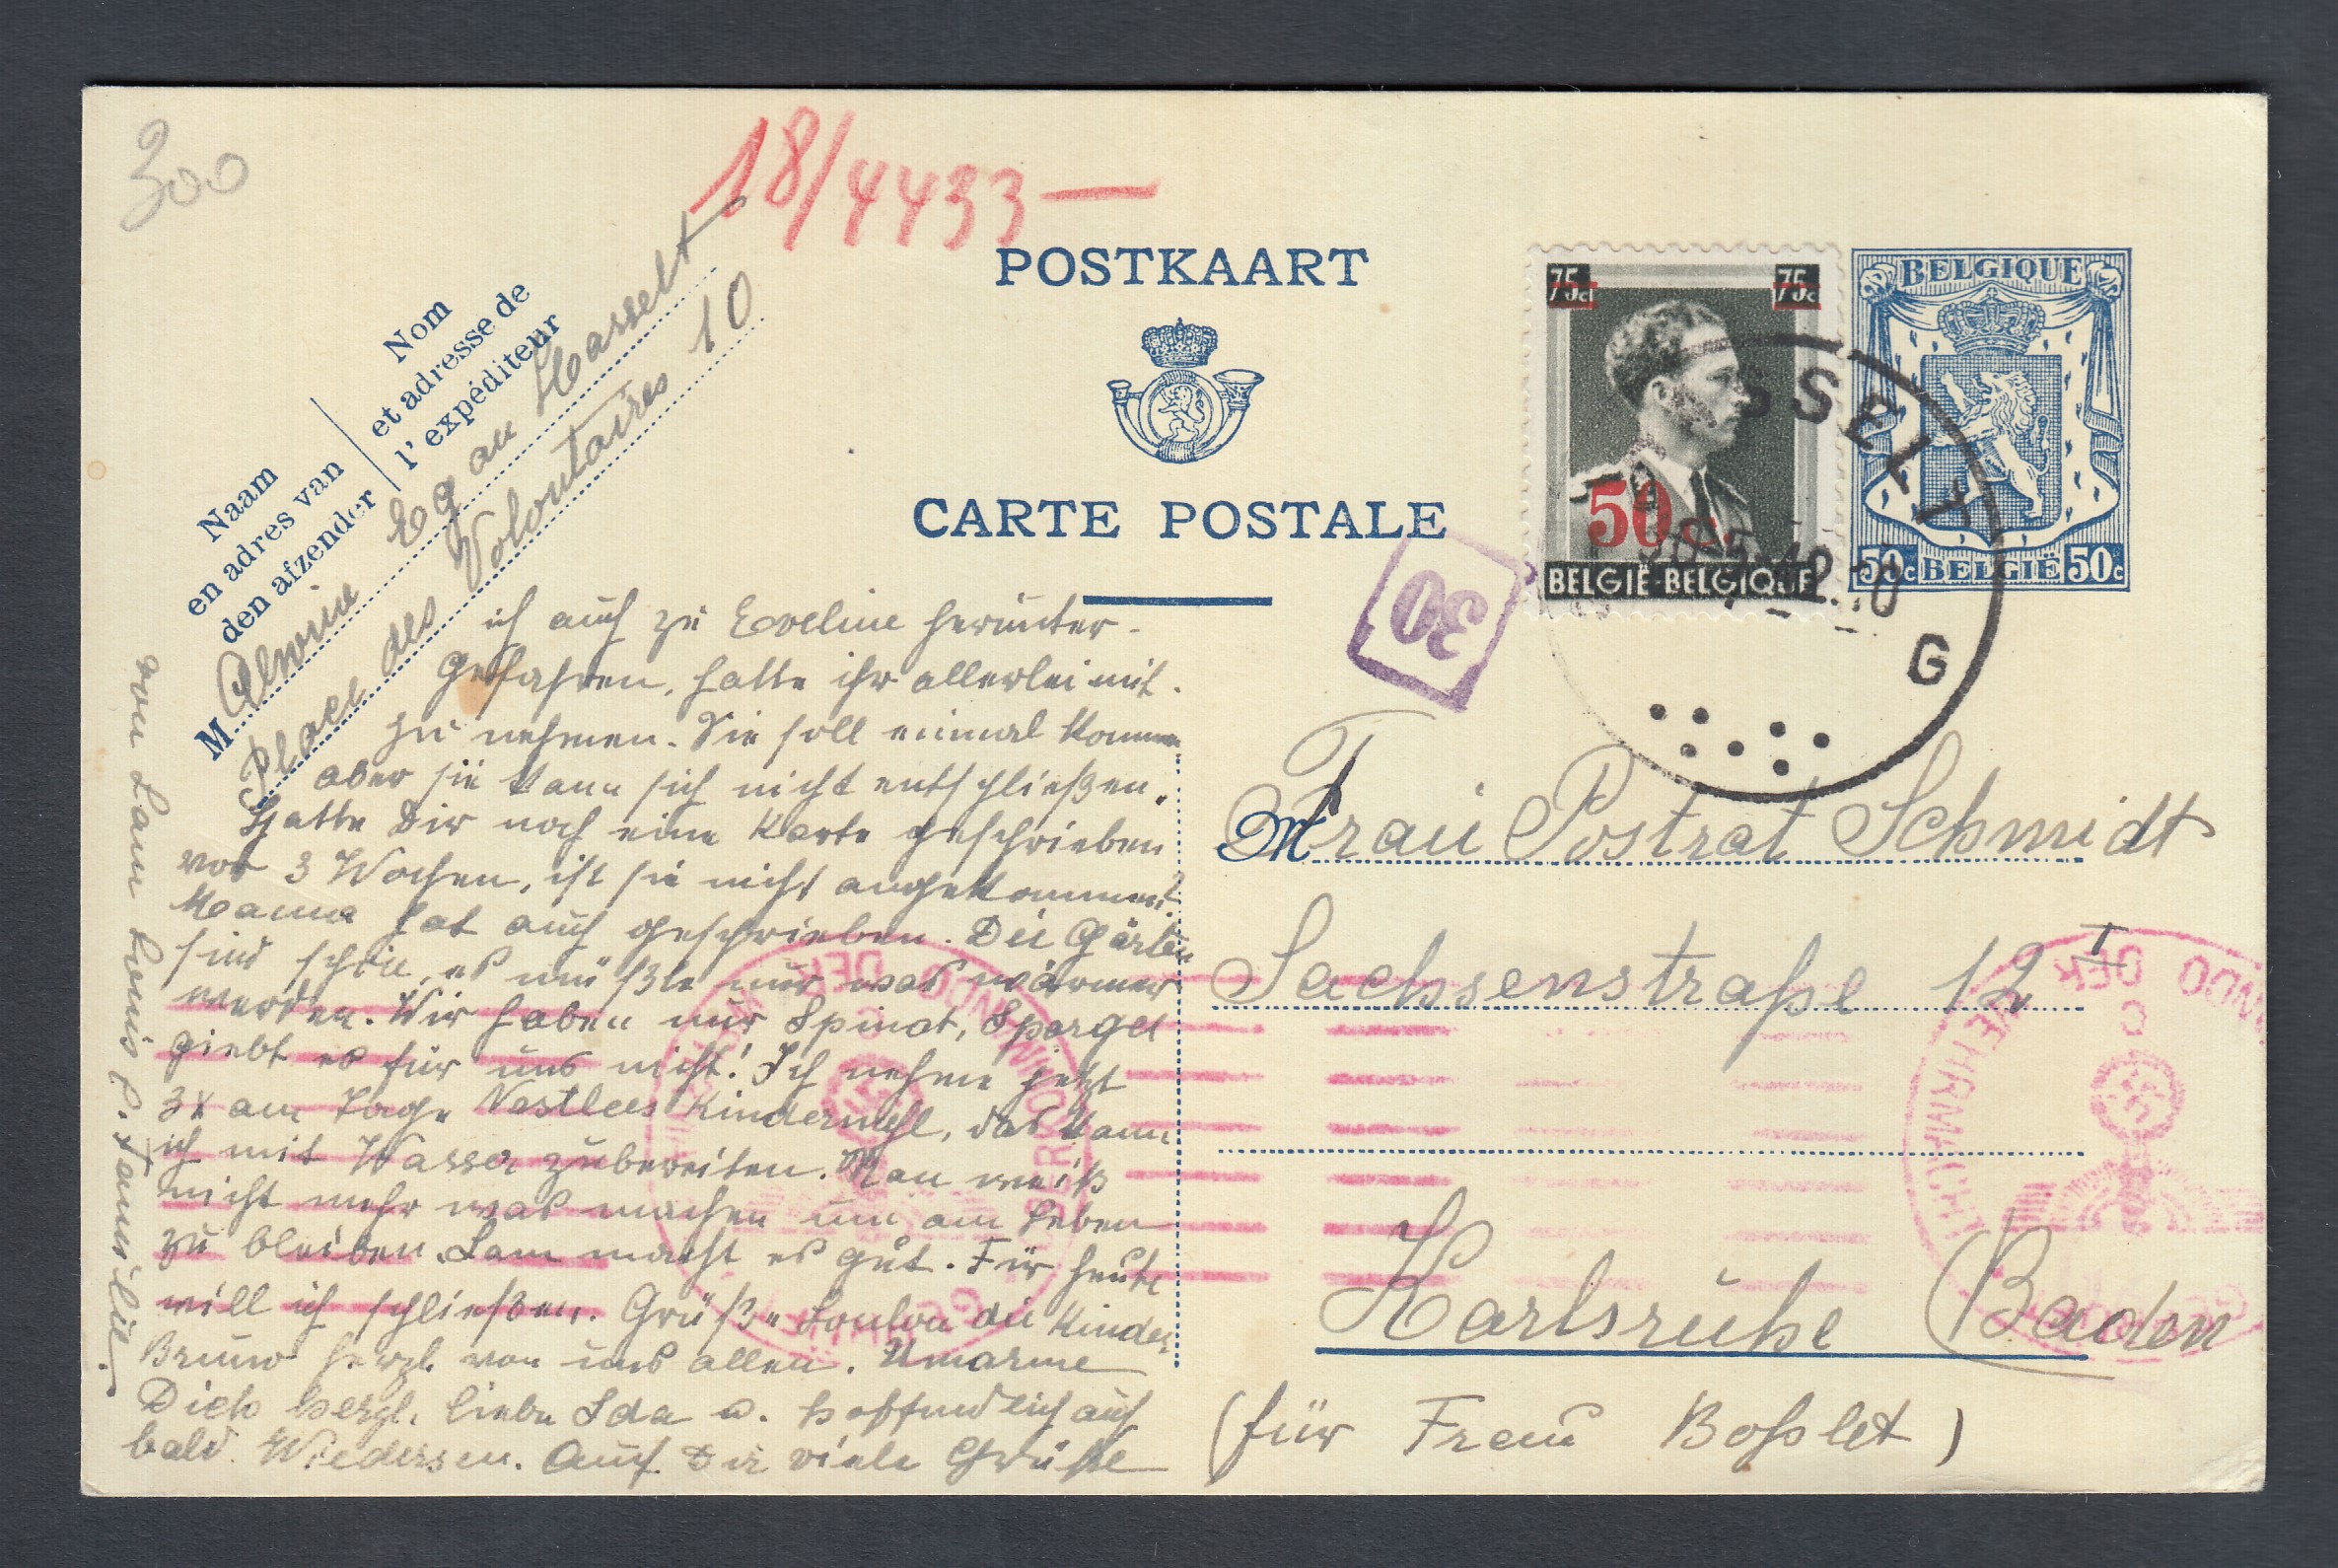 300
18/4433 —
Nom
et adresse de
l' expéditeur
Naam
en adres van
den afzender
M. Alwine Hasselt
Place des Volontaires 10
POSTKAART
CARTE POSTALE
75c 75c
50 c.
BELGIË-BELGIQUE
BELGIQUE
50c BELGIË 50c
SSELT
G
30
ich auch zu Eveline herunter-
gefahren, hatte ihr allerlei mit-
zu nehmen. Sie soll einmal kommen
aber sie kann sich nicht entschließen.
Hatte Dir noch eine Karte geschrieben
vor 3 Wochen, ist sie nicht angekommen?
hat auch geschrieben. Die Gärten
sind schön, es müßte nur was wärmer
werden. Wir haben nur Spinat, Spargel
giebt es für uns nicht! Ich nehme jetzt
3x am Tage Nestlees Kindermehl, das kann
ich mit Wasser zubereiten. Man weiß
nicht mehr was machen um am Leben
zu bleiben. Lam macht es gut. Für heute
will ich schließen. Grüße Loulou die Kinder
Bruno herzl. von uns allen. Umarme
Dich herzl. liebe Ida u. hoffendlich auf
bald. Wiedersen. Auch Dir viele Grüße
von Lam Familie.
M Frau Postrat Schmidt
Sachsenstraße 12 I
Karlsruhe (Baden
(für Frau Boßlet)
OBERKOMMANDO DER WEHRMACHT
GEÖFFNET
C